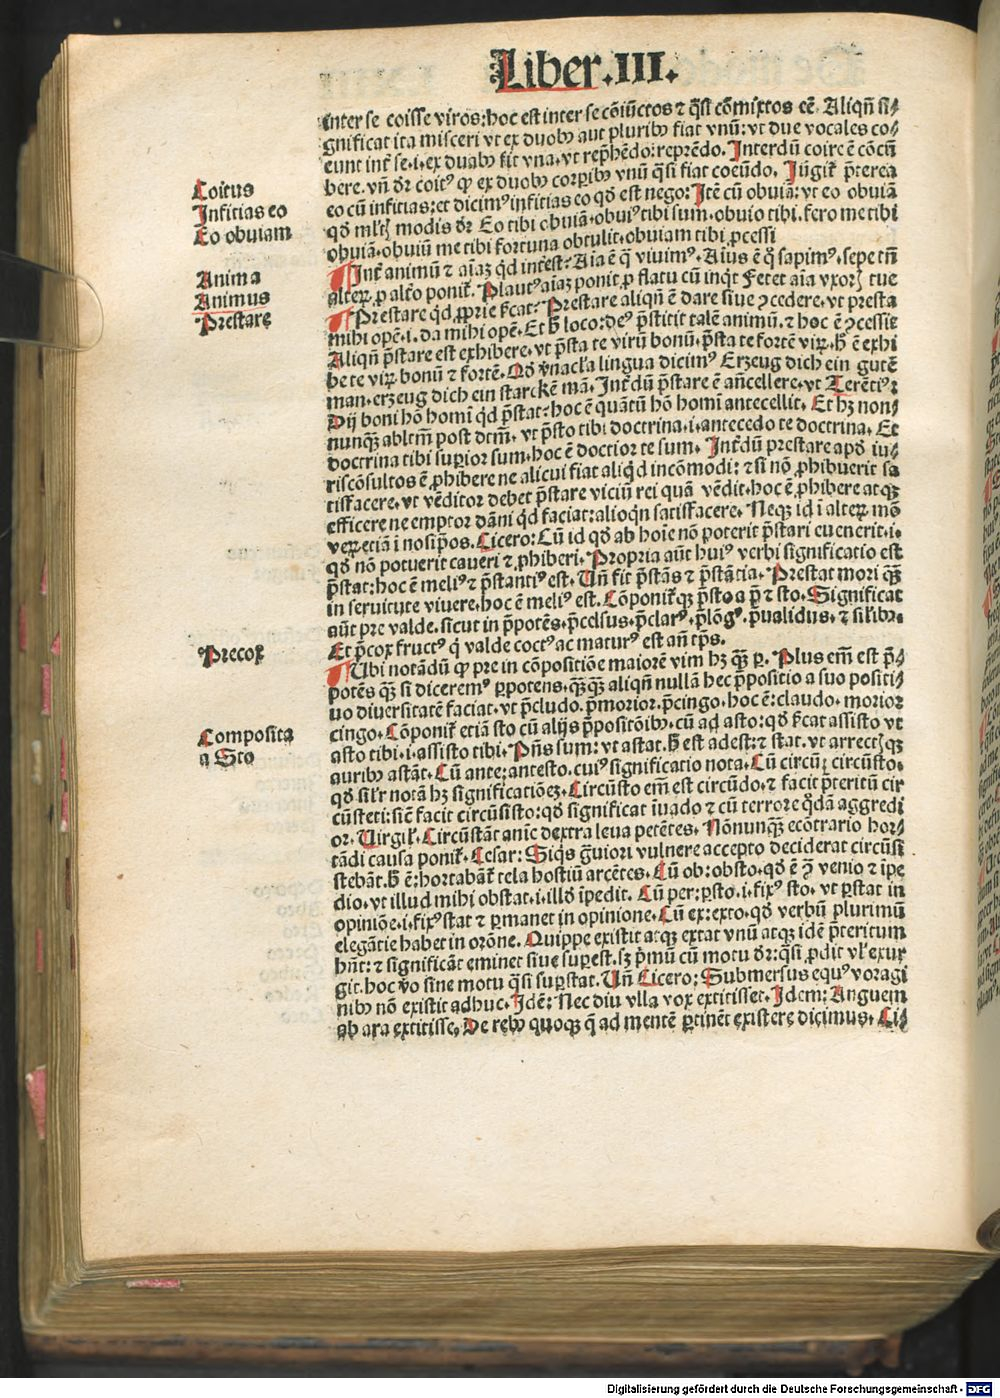 Liber.III.
inter se coisse viros: hoc est inter se cōiūctos ⁊ q̄si cōmixtos eē. Aliqñ si⸗
gnificat ita misceri vt ex duobꝰ aut pluribꝰ fiat vnū: vt due vocales co⸗
eunt int̄ se.i.ex duabꝰ fit vna.vt rep̄hēdo: reprēdo. Interdū coire ē cōcū
Coitus
bere. vñ dr̄ coitꝰ qͥ ex duobꝰ corꝑibꝰ vnū q̄si fiat coeūdo. Iūgit̄ p̄terea
Infitias eo
eo cū infitias: et dicimꝰ infitias eo qd̄ est nego: Itē cū obuiā: vt eo obuiā
Eo obuiam
qd̄ ml̄tꝭ modis dr̄ Eo tibi obuiā.obuiꝰ tibi sum.obuio tibi.fero me tibi
obuiā.obuiū me tibi fortuna obtulit.obuiam tibi ꝓcessi
Anima
Int̄ animū ⁊ aīaꝫ qd̄ int̄est: Aīa ē q̄ viuimꝰ. Aīus ē q̊ sapimꝰ. sepe tn̄
Animus
alteꝝ ꝓ alt̄o ponit̄. Plautꝰ aīaꝫ ponit ꝓ flatu cū inqͥt Fetet aīa vxorꝭ tue
Prestare
Prestare qd̄ ꝓprie st̄cat: Prestare aliqñ ē dare siue ↄcedere.vt presta
mihi opē.i.da mihi opē. Et h̄ loco: deꝰ p̄stitit talē animū. ⁊ hoc ē ↄcessit
Aliqñ p̄stare est exhibere. vt p̄sta te virū bonū. p̄sta te fortē viꝝ. h̄ ē exhi
be te viꝝ bonū ⁊ fortē. Qd̄ v̄nacl̄a lingua dicimꝰ Erzeug dich ein gutē
man. erzeug dich ein starckē mā. Int̄dū p̄stare ē añcellere. vt Terētiꝰ:
Dij boni hō homī qd̄ p̄stat: hoc ē quātū hō homī antecellit. Et hꝫ non⸗
nunqꝫ abltm̄ post dtm̄. vt p̄sto tibi doctrina.i.antecedo te doctrina. Et
doctrina tibi suꝑior sum. hoc ē doctior te sum. Int̄dū prestare apd̄ iu⸗
riscōsultos ē ꝓhibere ne alicui fiat aliqͥd incōmodi: ⁊ si nō ꝓhibuerit sa
tisfacere. vt vēditor debet p̄stare viciū rei quā vēdit. hoc ē ꝓhibere atqꝫ
efficere ne emptor dāni qd̄ faciat: alioqͥn satisfacere. Neqꝫ id ī alteꝝ mō
veꝝetiā ī nosip̄os. Cicero: Cū id qd̄ ab hoīe nō poterit p̄stari euenerit.i.
qd̄ nō potuerit caueri ⁊ ꝓhiberi. Propria aūt huiꝰ verbi significatio est
p̄stat: hoc ē meliꝰ ⁊ p̄stantiꝰ est. Uñ fit p̄stās ⁊ p̄stātia. Prestat mori qꝫ
in seruitute viuere. hoc ē meliꝰ est. Cōponit̄qꝫ p̄sto a p̄ ⁊ sto. Significat
aūt pre valde. sicut in p̄potēs. p̄celsus. p̄clarꝰ. p̄lōgꝰ. p̄ualidus. ⁊ sil̄ibꝫ.
Precox
Et p̄cox fructꝰ qͥ valde coctꝰ ac maturꝰ est añ tp̄s.
Ubi notādū qͥ pre in cōpositiōe maiorē vim hꝫ qꝫ ꝑ. Plus em̄ est p̄⸗
potēs qꝫ si diceremꝰ ꝑpotens. qꝫqꝫ aliqñ nullā hec p̄positio a suo positi⸗
uo diuersitatē faciat. vt p̄cludo. p̄morior. p̄cingo. hoc ē: claudo. morior
Composita
cingo. Cōponit̄ etiā sto cū alijs p̄positōibꝰ. cū ad asto: qd̄ st̄cat assisto vt
a Sto
asto tibi.i.assisto tibi. Pn̄s sum: vt astat. h̄ est adest: ⁊ stat. vt arrectꝭqꝫ
auribꝰ astāt. Cū ante: antesto. cuiꝰ significatio nota. Cū circū: circūsto.
qd̄ sil̄r notā hꝫ significatiōeꝫ. Circūsto em̄ est circūdo. ⁊ facit p̄teritū cir
cūsteti: sic̄ facit circūsisto: qd̄ significat īuado ⁊ cū terrore qͦdā aggredi
or. Uirgil̄. Circūstāt anīe dextra leua petētes. Nōnunqꝫ ecōtrario hor⸗
tādi causa ponit̄. Cesar: Siqͥs ḡuiori vulnere accepto deciderat circūsi
stebāt. h̄ ē: hortabāt̄ tela hostiū arcētes. Cū ob: obsto. qd̄ ē ↄͣ venio ⁊ īpe
dio. vt illud mihi obstat.i.illd̄ īpedit. Cū per: ꝑsto.i.fixꝰ sto. vt ꝑstat in
opiniōe.i.fixꝰ stat ⁊ ꝑmanet in opinione. Cū ex: exto. qd̄ verbū plurimū
elegātie habet in orōne. Quippe existit atqꝫ extat vnū atqꝫ idē p̄teritum
hn̄t: ⁊ significāt eminet siue suꝑest. sꝫ p̄mū cū motu dr̄: q̄si ꝓdit vl̓ exur
git. hoc v̊o sine motu q̄si suꝑstat. Uñ Cicero: Submersus equꝰ voragi
nibꝰ nō existit adhuc. Idē: Nec diu vlla vox extitisset. Idem: Anguem
ab ara extitisse. De rebꝰ quoqꝫ q̄ ad mentē ꝑtinēt existere dicimus. Ci⸗
Digitalisierung gefördert durch die Deutsche Forschungsgemeinschaft - DFG